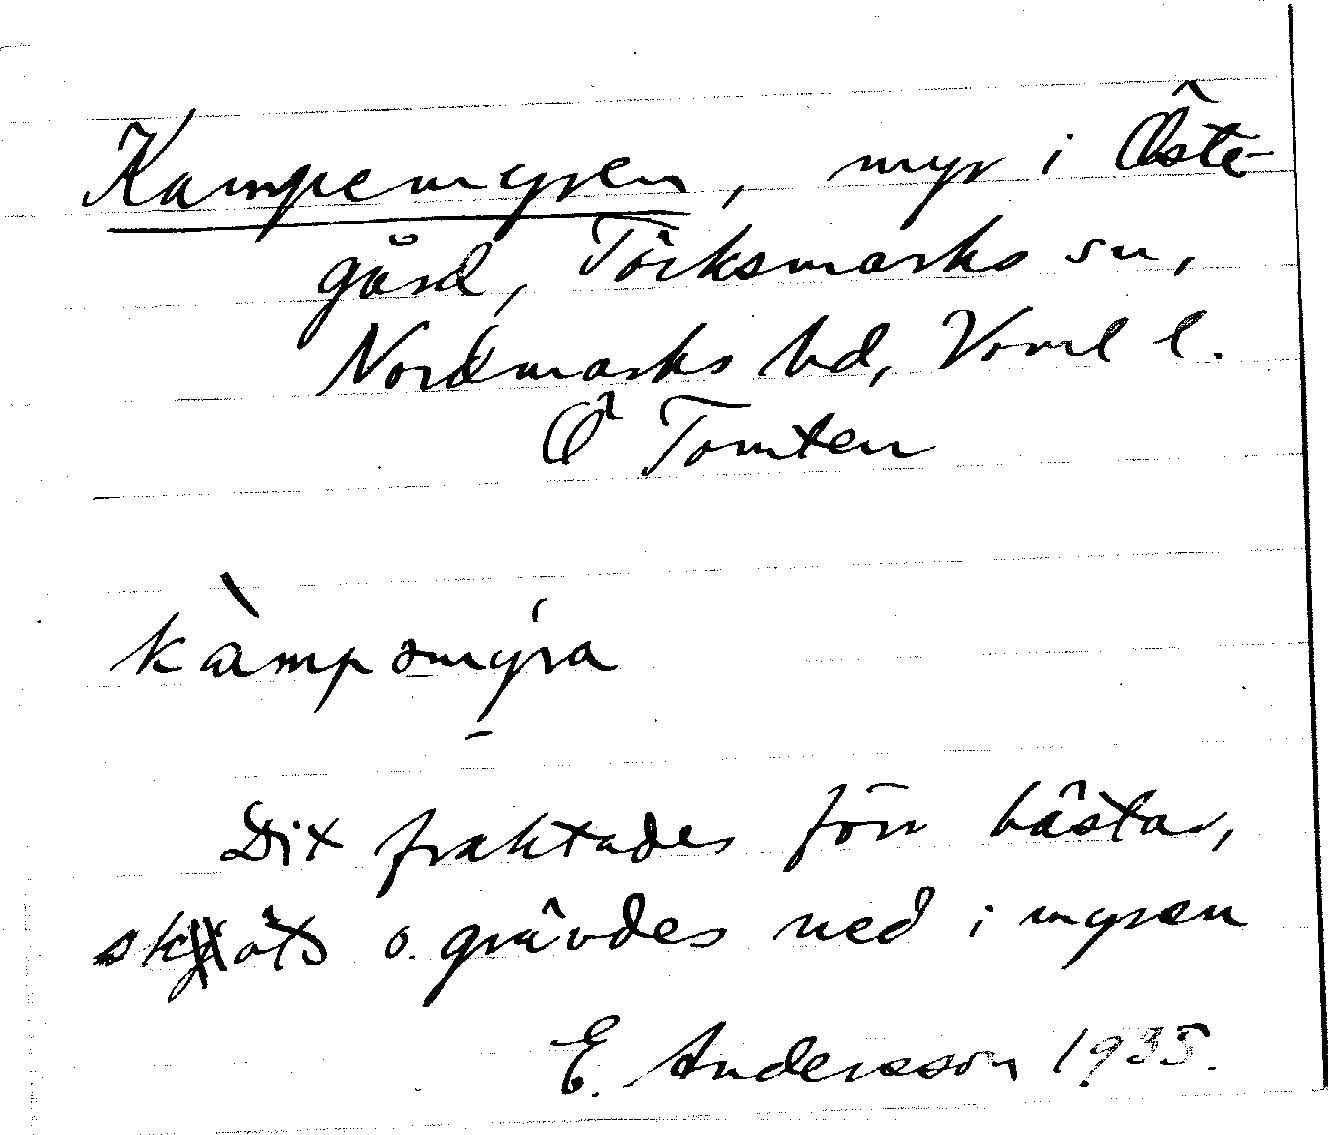 Kampemyren, myr i Öste-
gård, Töcksmarks sn,
Nordmarks hd, Vrml l.
Ö Tomten
kàmpəmýra
Dit fraktades förr hästar,
sköts o. grävdes ned i myren
E. Andersson 1935.